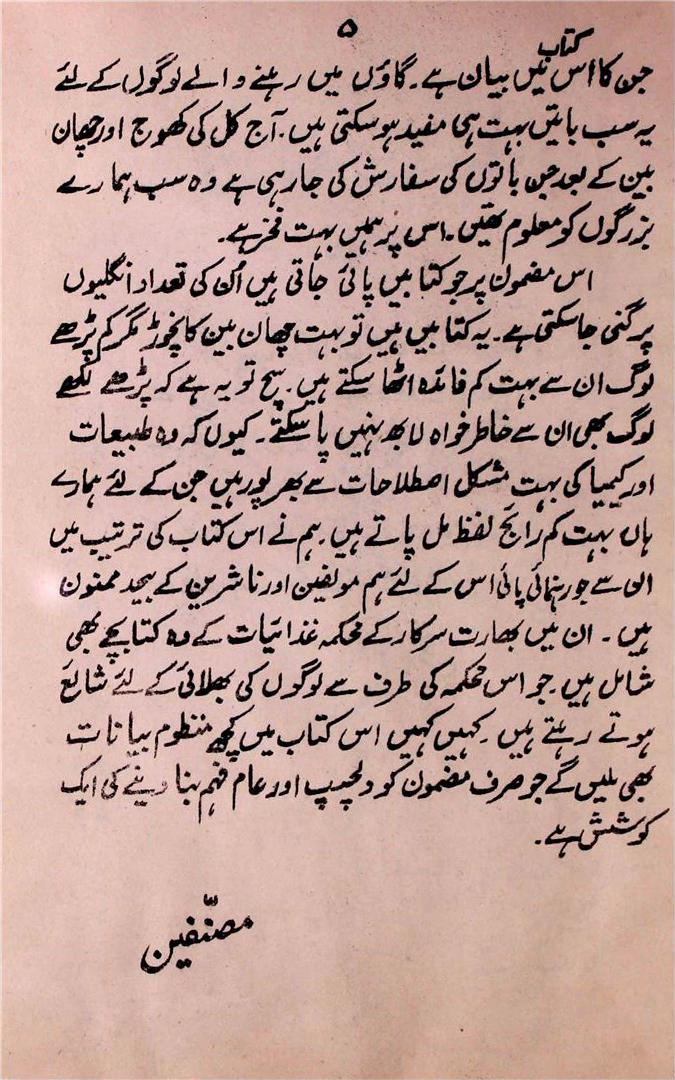 ۵
جن کا اس کتاب میں بیان ہے۔ گاؤں میں رہنے والے لوگوں کے لئے
یہ سب باتیں بہت ہی مفید ہو سکتی ہیں۔ آج کل کی کھوج اور چھان
بین کے بعد جن باتوں کی سفارش کی جا رہی ہے وہ سب ہمارے
بزرگوں کو معلوم تھیں۔ اس پر ہمیں بہت فخر ہے۔
اس مضمون پر جو کتابیں پائی جاتی ہیں اُن کی تعداد انگلیوں
پر گنی جا سکتی ہے۔ یہ کتابیں ہیں تو بہت چھان بین کا نچوڑ مگر کم پڑھے
لوگ ان سے بہت کم فائدہ اٹھا سکتے ہیں۔ سچ تو یہ ہے کہ پڑھے لکھے
لوگ بھی ان سے خاطر خواہ لابھ نہیں پا سکتے۔ کیوں کہ وہ طبیعات
اور کیمیا کی بہت مشکل اصطلاحات سے بھر پور ہیں جن کے لئے ہمارے
ہاں بہت کم رائج لفظ مل پاتے ہیں۔ ہم نے اس کتاب کی ترتیب میں
ان سے جو رہنمائی پائی اس کے لئے ہم مولفین اور ناشرین کے بیحد ممنون
ہیں۔ ان میں بھارت سرکار کے محکمہ غذائیات کے وہ کتابچے بھی
شامل ہیں۔ جو اس محکمہ کی طرف سے لوگوں کی بھلائی کے لئے شائع
ہوتے رہتے ہیں۔ کہیں کہیں اس کتاب میں کچھ منظوم بیانات
بھی ملیں گے جو صرف مضمون کو دلچسپ اور عام فہم بنا دینے کی ایک
کوشش ہے۔
مصنّفین